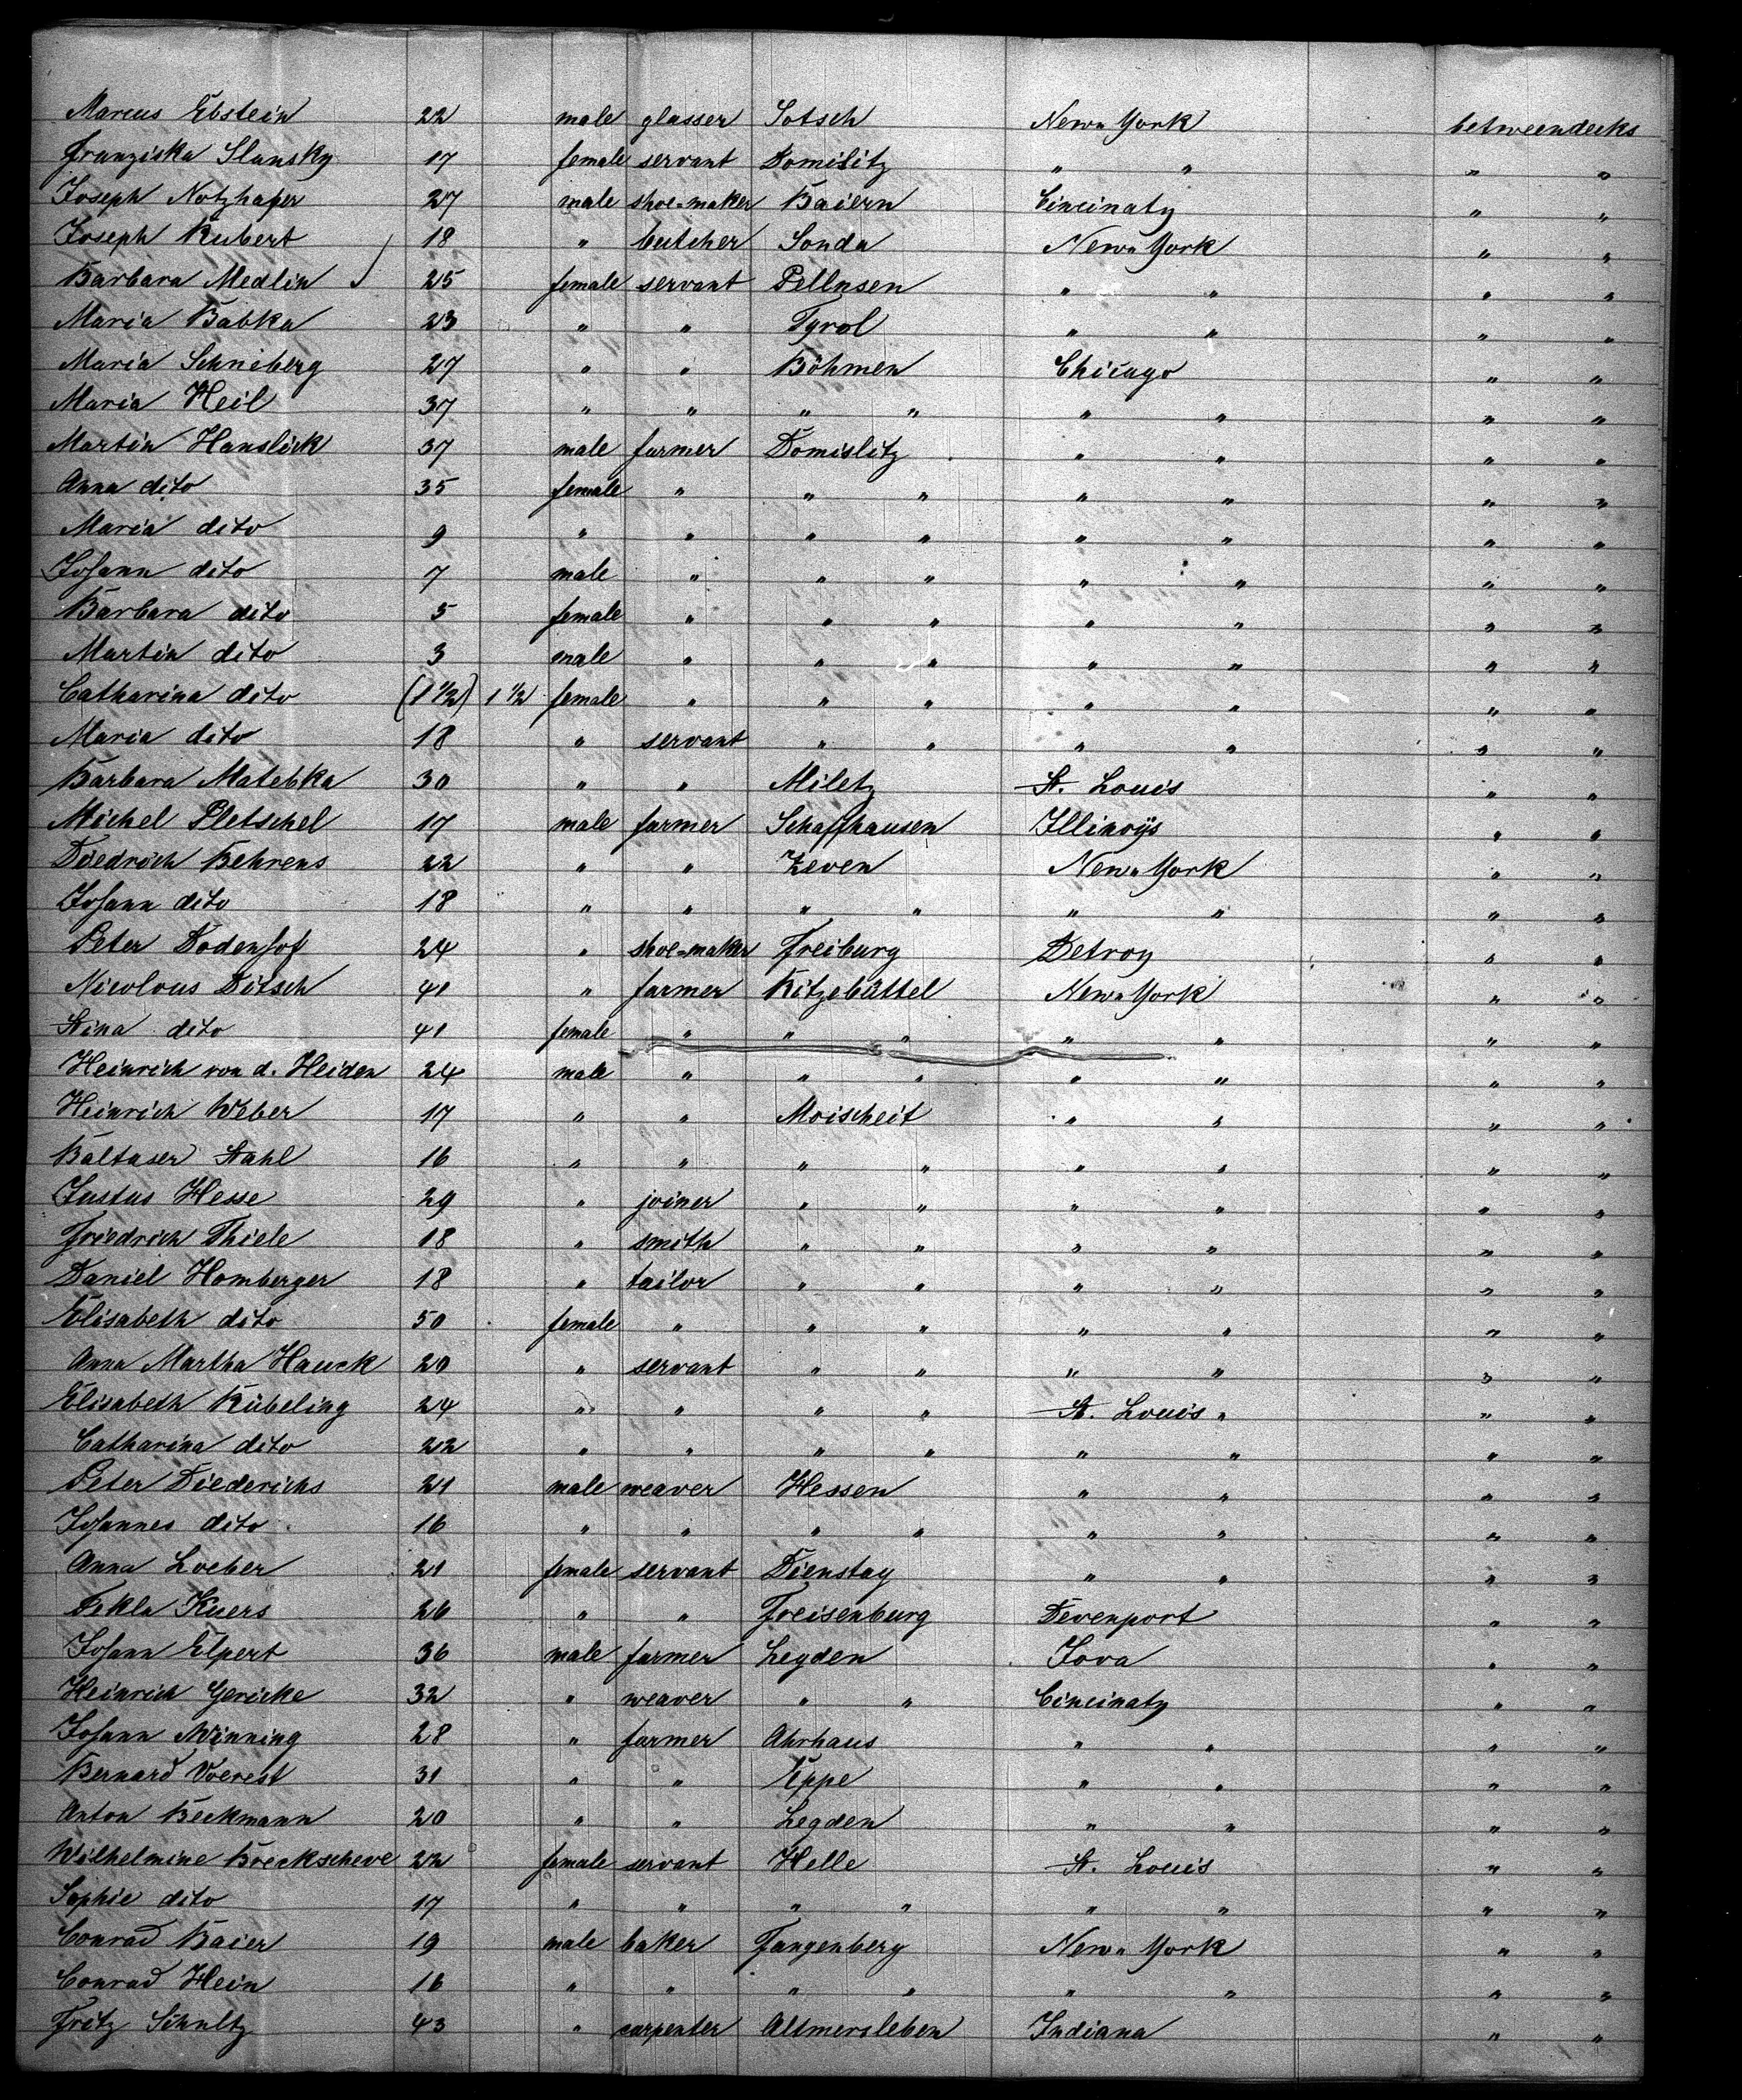 Marcus Ebstein 22 male glasser Sotsch New York betweendecks
Franziska Slansky 17 female servant Domislitz " " " "
Joseph Notzhafer 27 male shoe-maker Baiern Cincinaty " "
Joseph Kubert 18 " butcher Sonda New York " "
Barbara Medlin 25 female servant Pellnsen " " " "
Maria Babka 23 " " Tyrol " " " "
Maria Schneberg 27 " " Böhmen Chicago " "
Maria Heil 37 " " " " " " " "
Martin Hanslick 37 male farmer Domislitz " " " "
Anna dito 35 female " " " " " " "
Maria dito 9 " " " " " " " "
Johann dito 7 male " " " " " " "
Barbara dito 5 female " " " " " " "
Martin dito 3 male " " " " " " "
Catharina dito (1 1/2) 1 1/2 female " " " " " " "
Maria dito 18 " servant " " " " " "
Barbara Matebka 30 " " Miletz St. Louis " "
Michel Pletschel 17 male farmer Schaffhausen Illinoÿs " "
Diedrich Behrens 22 " " Zeven New York " "
Johann dito 18 " " " " " " " "
Peter Dodenhof 24 " shoe-maker Freiburg Detroy " "
Nicolous Ditsch 41 " farmer Ritzebüttel New York " "
Stina dito 41 female " " " " " " "
Heinrich von d. Heiden 24 male " " " " " " "
Heinrich Weber 17 " " Moischeit " " " "
Baltaser Stahl 16 " " " " " " " "
Justus Hesse 29 " joiner " " " " " "
Friedrich Thiele 18 " smith " " " " " "
Daniel Homberger 18 " tailor " " " " " "
Elisabeth dito 50 female " " " " " " "
Anna Martha Hauck 20 " servant " " " " " "
Elisabeth Kübeling 24 " " " " St. Louis " " "
Catharina dito 22 " " " " " " " "
Peter Diederichs 21 male weaver Hessen " " " "
Johannes dito 16 " " " " " " " "
Anna Loeber 21 female servant Dienstay " " " "
Tekla Kuers 26 " " Freisenburg Devenport " "
Johann Elpert 36 male farmer Legden Iova " "
Heinrich Gericke 32 " weaver " " Cincinaty " "
Johann Winning 28 " farmer Ahrhaus " " " "
Bernard Voerest 31 " " Eppe " " " "
Anton Beckmann 20 " " Legden " " " "
Wilhelmine Breckscheve 22 female servant Helle St. Louis " "
Sophie dito 17 " " " " " " " "
Conrad Baier 19 male baker Fangenberg New York " "
Conrad Hein 16 " " " " " " " "
Fritz Schultz 43 " carpenter Altmersleben Indiana " "